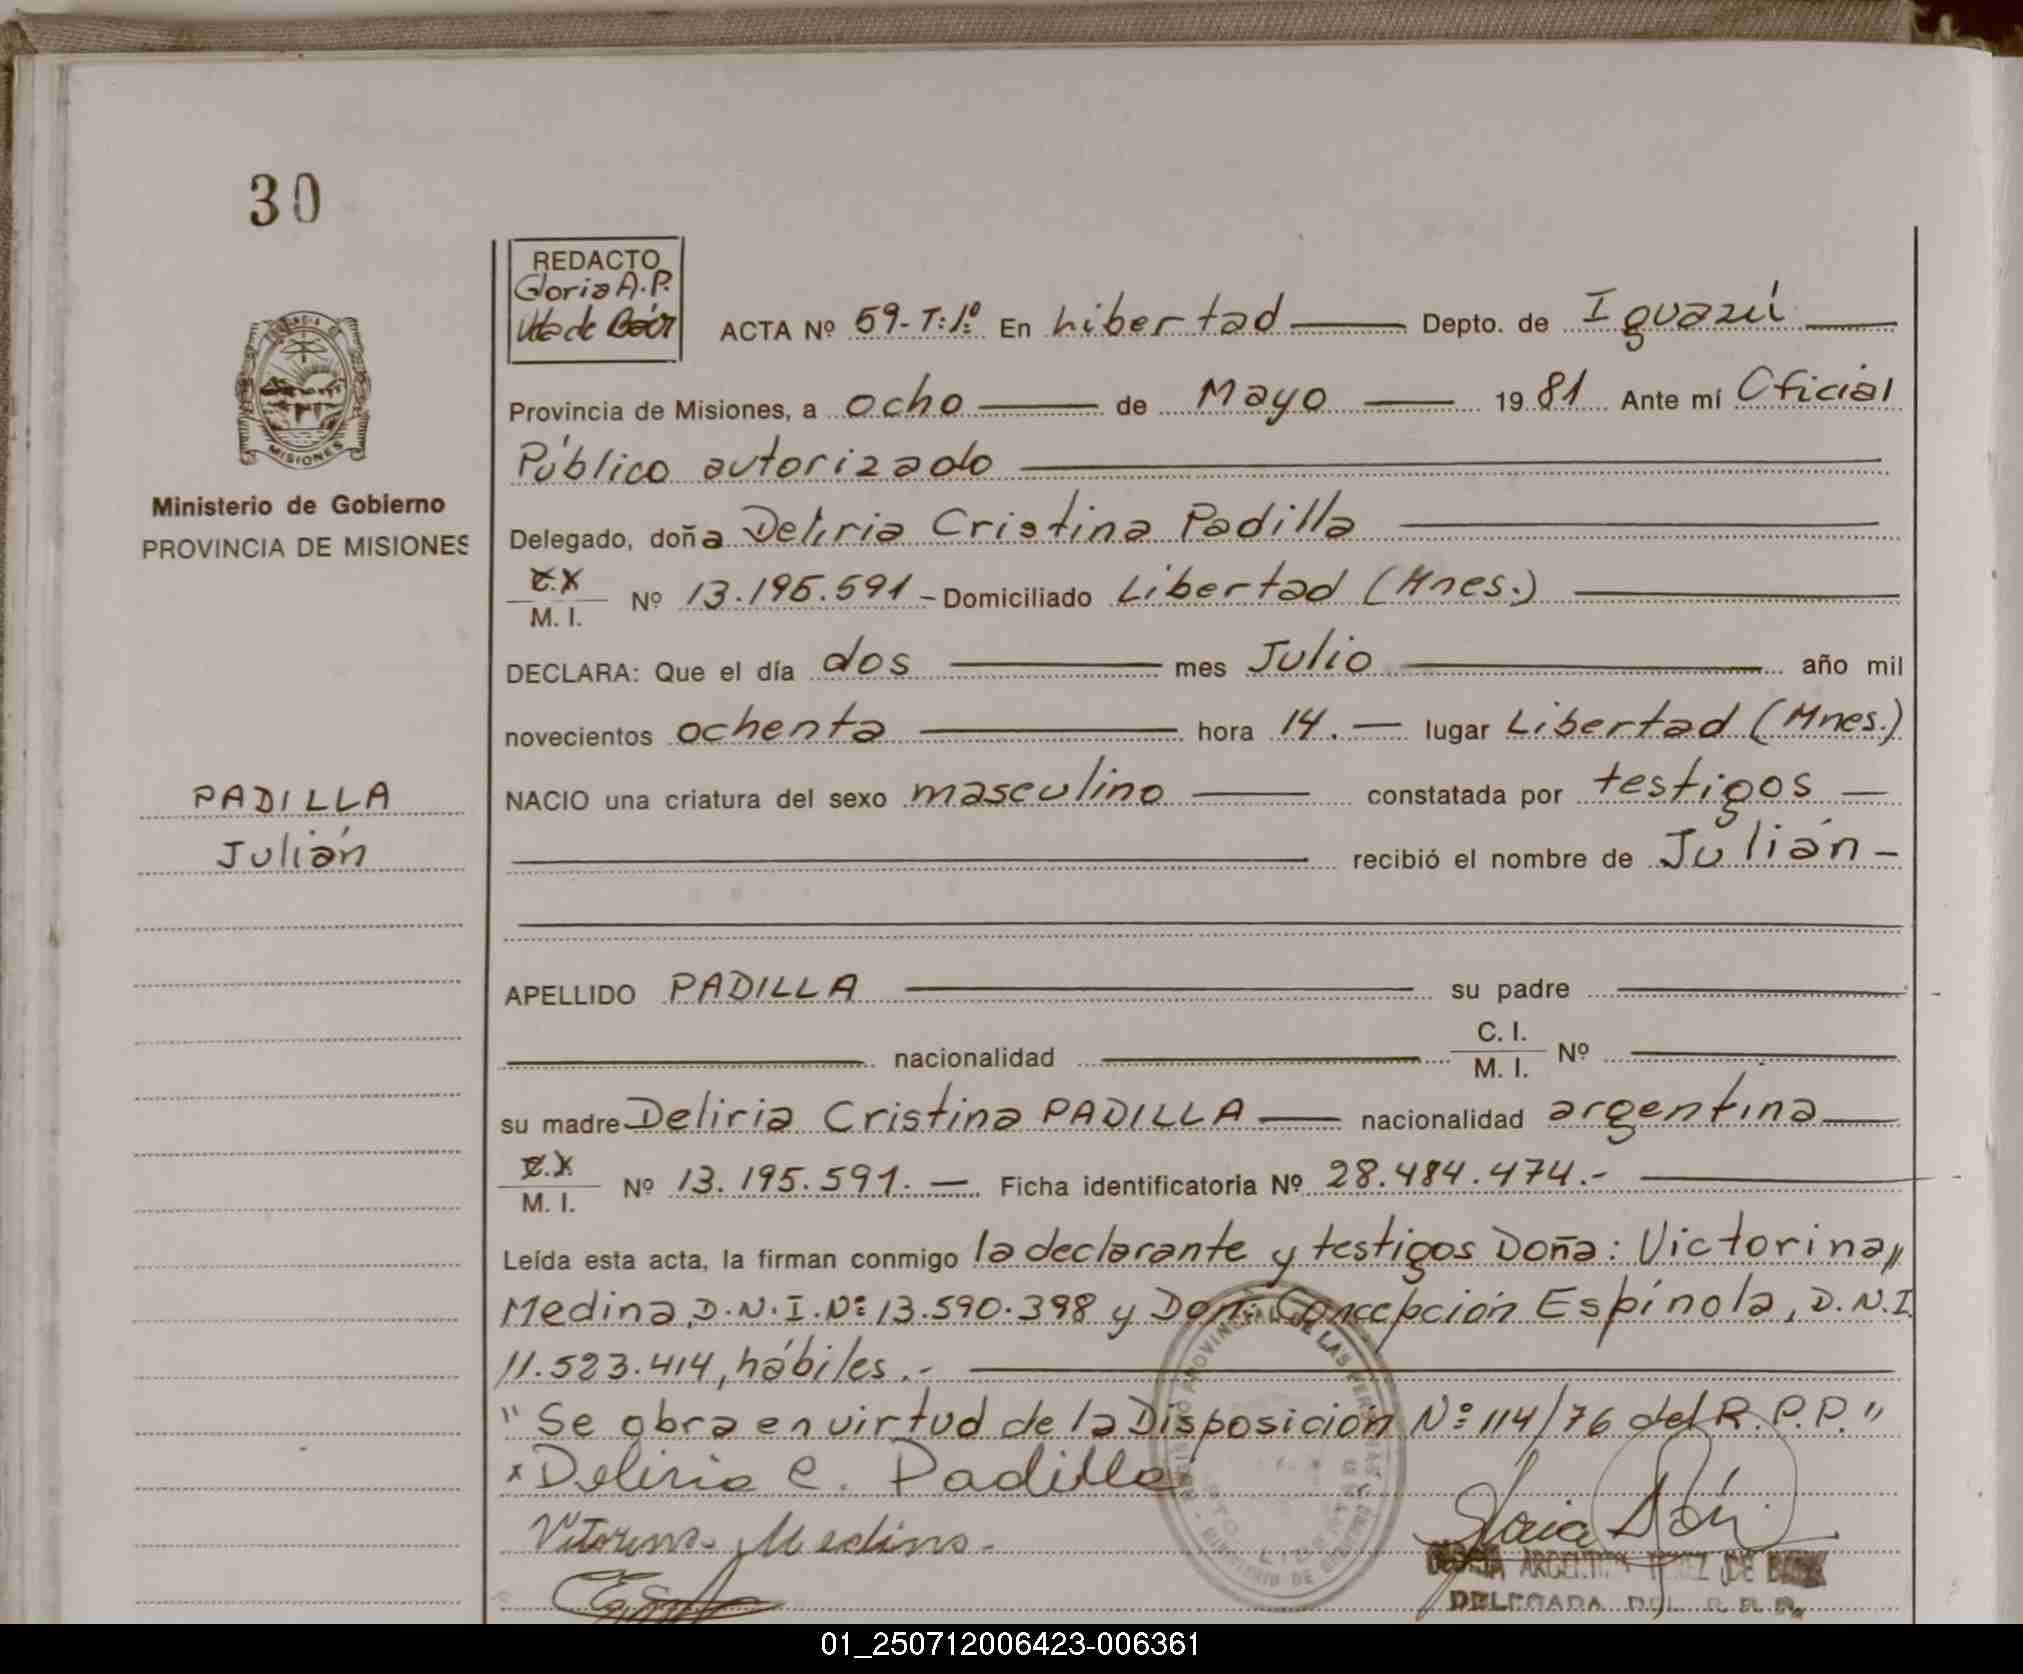 30
REDACTO
Gloria A. P.
Vda de Báez
ACTA Nº 59-T:1º En Libertad Depto. de Iguazú
Provincia de Misiones, a ocho de Mayo 1981 Ante mí Oficial
Público autorizado
Delegado, doña Deliria Cristina Padilla
C.I.
M. I. Nº 13.195.591 - Domiciliado Libertad (Mnes.)
DECLARA: Que el día dos mes Julio año mil
novecientos ochenta hora 14. — lugar Libertad (Mnes.)
NACIO una criatura del sexo masculino constatada por testigos —
recibió el nombre de Julián -
APELLIDO PADILLA su padre
nacionalidad C. I.
M. I. Nº
su madre Deliria Cristina PADILLA nacionalidad argentina
C.I.
M. I. Nº 13.195.591. — Ficha identificatoria Nº 28.484.474.-
Leída esta acta, la firman conmigo la declarante y testigos Doña: Victorina,,
Medina, D.N.I.Nº 13.590.398 y Don: Concepción Espínola, D.N.I.
11.523.414, hábiles.-
"Se obra en virtud de la Disposición Nº 114/76 del R.P.P."
x Deliria C. Padilla
Vitorina Medina
MISIONES
Ministerio de Gobierno
PROVINCIA DE MISIONES
PADILLA
Julián
ARGENTINA DE
DELEGADA DEL R.P.P.
01_250712006423-006361